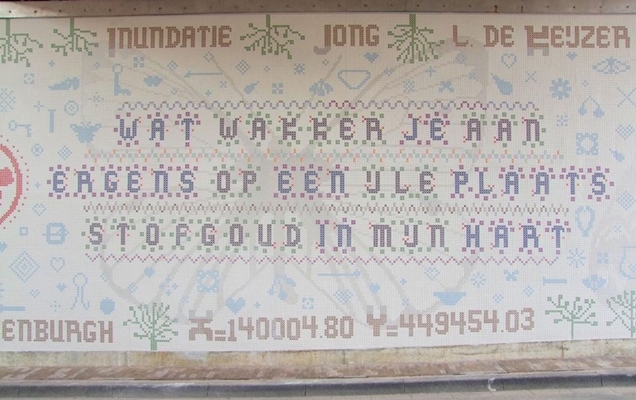 INUNDATIE JONG L. DE KEIJZER
WAT WAKKER JE AAN
ERGENS OP EEN IJLE PLAATS
STOFGOUD IN MIJN HART
ENBURGH X=140004.80 Y=449454.03